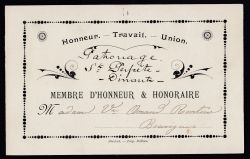 Honneur. — Travail. — Union.
Patronage
Ste Perpète
Dinant
MEMBRE D'HONNEUR & HONORAIRE
Madame Vve Amand
Bouvignes